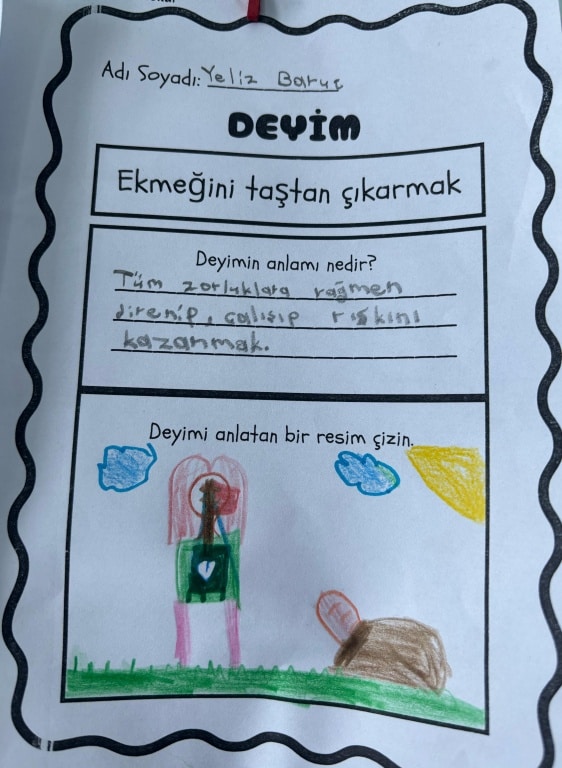 Adı Soyadı: Yeliz Baruş
DEYİM
Ekmeğini taştan çıkarmak
Deyimin anlamı nedir?
Tüm zorluklara rağmen
direnip, çalışıp rıskını
kazanmak.
Deyimi anlatan bir resim çizin.